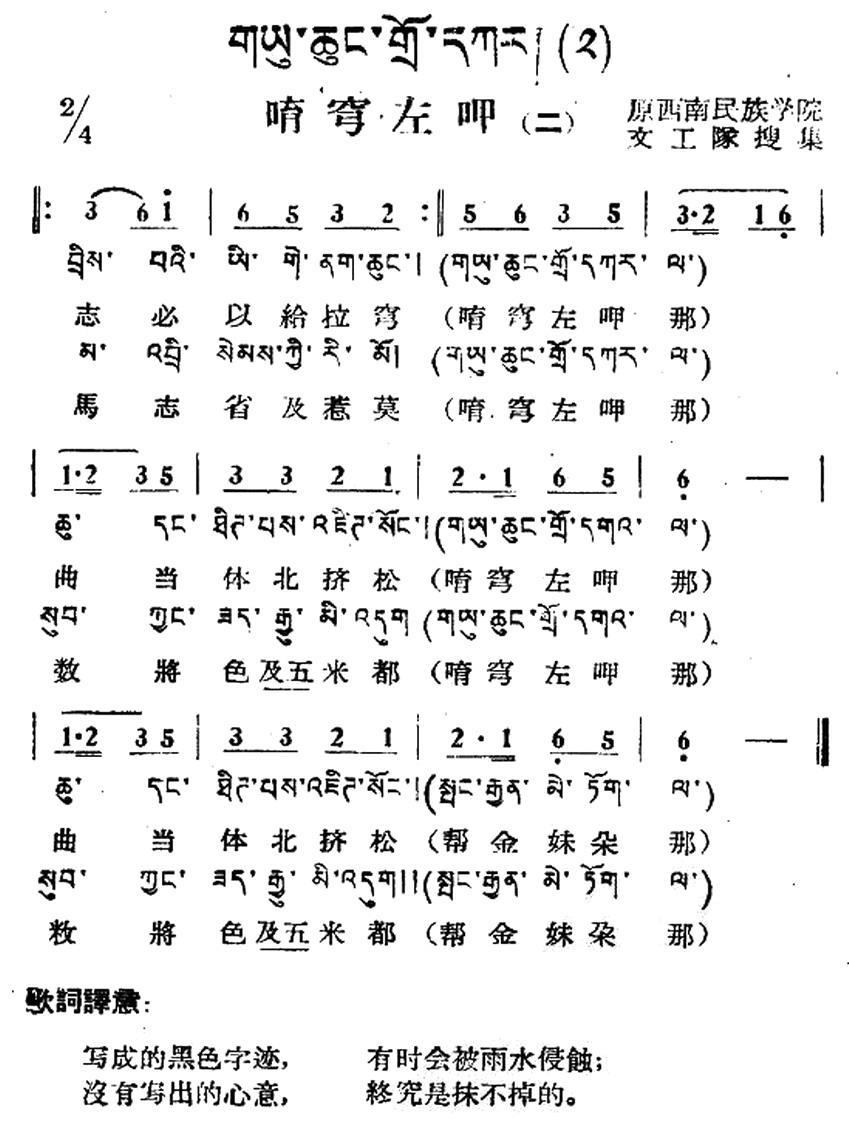 གཡུ་ཆུང་གྲོ་དཀར། (༢)
2/4 唷穹左呷（二） 原西南民族学院
文工隊搜集
‖: 3 6 i | 6 5 3 2 :‖ 5 6 3 5 | 3·2 1 6 |
བྲིས་ པའི་ ཡི་ གེ་ ནག་ཆུང་། (གཡུ་ཆུང་གྲོ་དཀར་ ལ་)
志必以給拉穹（唷穹左呷那）
མ་ འབྲི་ སེམས་ཀྱི་ རི་ མོ། (གཡུ་ཆུང་གྲོ་དཀར་ ལ་)
馬志省及惹莫（唷穹左呷那）
| 1·2 3 5 | 3 3 2 1 | 2·1 6 5 | 6 — |
ཆུ་ དང་ ཐིཊ་པས་འཇིཊ་སོང་། (གཡུ་ཆུང་གྲོ་དགའ་ ལ་)
曲当体北挤松（唷穹左呷那）
སུབ་ ཀྱང་ ཟད་ རྒྱུ་ མི་འདུག (གཡུ་ཆུང་གྲོ་དགའ་ ལ་)
数將色及五米都（唷穹左呷那）
| 1·2 3 5 | 3 3 2 1 | 2·1 6 5 | 6 — ‖
ཆུ་ དང་ ཐིཊ་པས་འཇིཊ་སོང་། (སྤང་རྒྱན་ མེ་ ཏོག་ ལ་)
曲当体北挤松（帮金妹朵那）
སུབ་ ཀྱང་ ཟད་ རྒྱུ་ མི་འདུག།། (སྤང་རྒྱན་ མེ་ ཏོག་ ལ་)
敉將色及五米都（帮金妹朶那）
歌詞譯意：
写成的黑色字迹， 有时会被雨水侵蝕；
沒有写出的心意， 終究是抹不掉的。